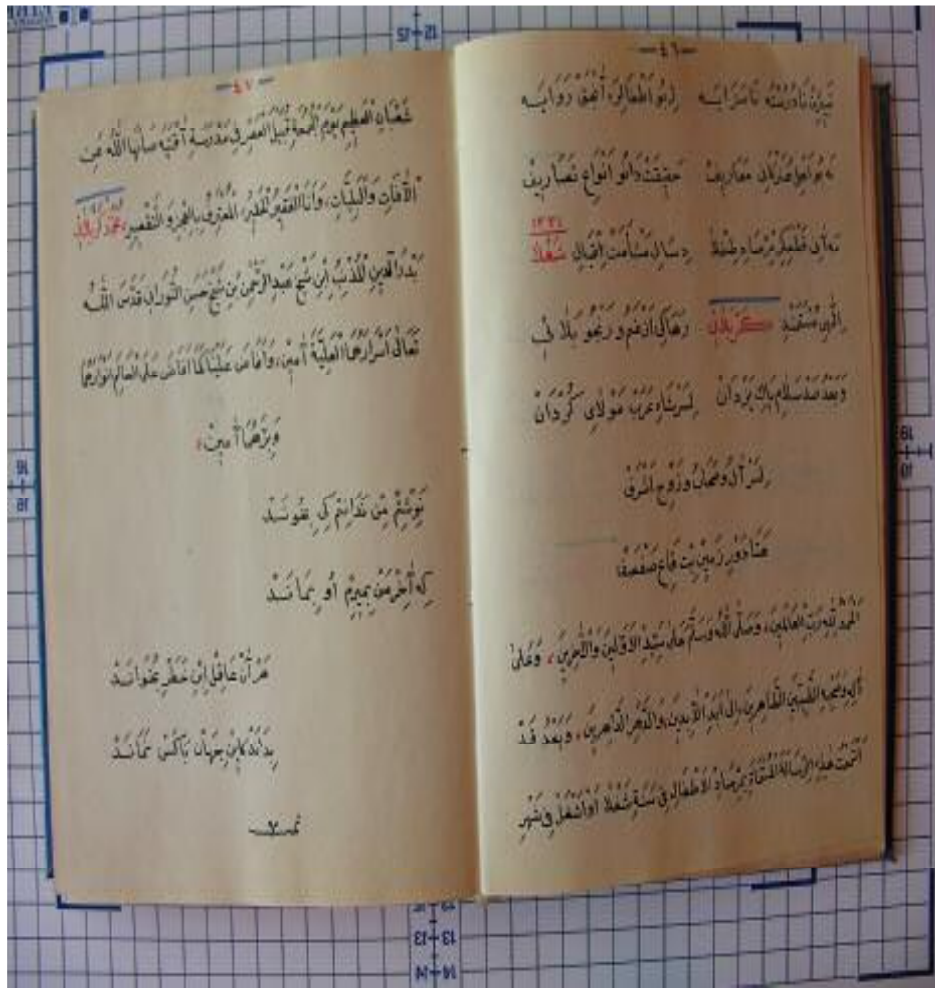 —٤٦—
نادرسته ناسزايه لبو اطفالى روايه
نه بو اهل معاريف حقيقت دانو انواع تصاريف
١٣٣١
اقبال شغلا
الهى رهاكى اژ غم و رنجو بلائى
وبعد صد سلام پاك يزدان لسر شاه عرب مولاى كردان
لسر آل وصحاب وزوج اشرف
هتا دور زمين بت قاع صفصف
اَلْحَمْدُ لِلّٰهِ رَبِّ الْعَالَمِينَ، وَصَلَّى اللّٰهُ وَسَلَّمَ عَلَى سَيِّدِ الْاَوَّلِينَ وَالْآخِرِينَ، وَعَلَى
آلِهِ وَصَحْبِهِ الطَّيِّبِينَ الطَّاهِرِينَ، اِلَى اَبَدِ الْآبِدِينَ وَالدَّهْرِ الدَّاهِرِينَ، وَبَعْدُ قَدْ
اَتْمَمْتُ هٰذِهِ الرِّسَالَةَ الْمُسَمَّاةَ الْاَطْفَالِ فِى سَنَةِ شغلا فِى شَهْرِ
—٤٧—
شَعْبَانِ الْمُعَظَّمِ يَوْمَ الْجُمُعَةِ قُبَيْلَ الْعَصْرِ فِى مَدْرَسَةِ صَانَهَا اللّٰهُ عَنِ
الْآفَاتِ وَالْبَلِيَّاتِ، وَاَنَا الْفَقِيرُ الْحَقِيرُ، الْمُعْتَرِفُ بِالْعَجْزِ وَالتَّقْصِيرِ، مُحَمَّدْ
بَدْرُ الدِّينِ الْمُذْنِبُ اِبْنِ شَيْخِ عَبْدِ الرَّحْمٰنِ بْنِ شَيْخِ حَسَنِ النُّورَانِى قَدَّسَ اللّٰهُ
تَعَالَى اَسْرَارَهُمَا الْعَلِيَّةَ آمِينَ، وَاَفَاضَ عَلَيْنَا كَمَا اَفَاضَ عَلَى الْعَالَمِ اَنْوَارَهُمَا
وَبِرَّهُمَا آمِينَ،
نَوِشْتَمْ مَنْ نَدَانَمْ كِى
كِه آخِرْ مَنْ بِمِيرَمْ اُو بِمَانَدْ
هَرْ آنْ عَاقِلْ اِينْ خَطْرِ بِخْوَانَدْ
بِدَانَدْ كِايِنْ جِهَانْ بَاكَسْ نَمَانَدْ